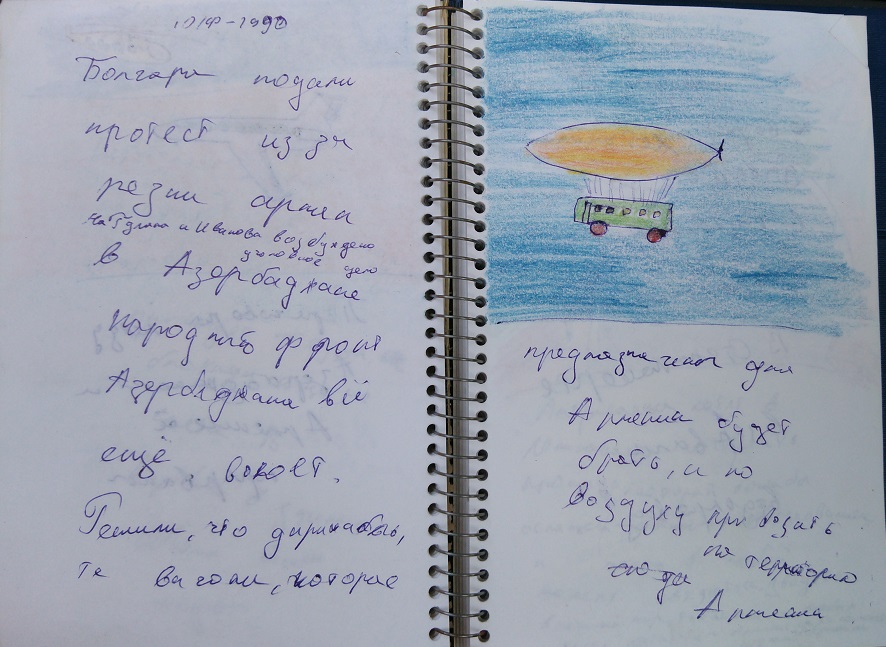 1990
Болгари подали
протест из за
резни армян
на Гдляна и Иванова возбуждено
уголовное дело
в Азербаджане
народный ффронт
Азербаджана всё
ещё воюет.
что дирижабль,
те вагоны, которые
предназначены для
Армении будет
брать, и по
воздуху привозить
на территорию
Армении